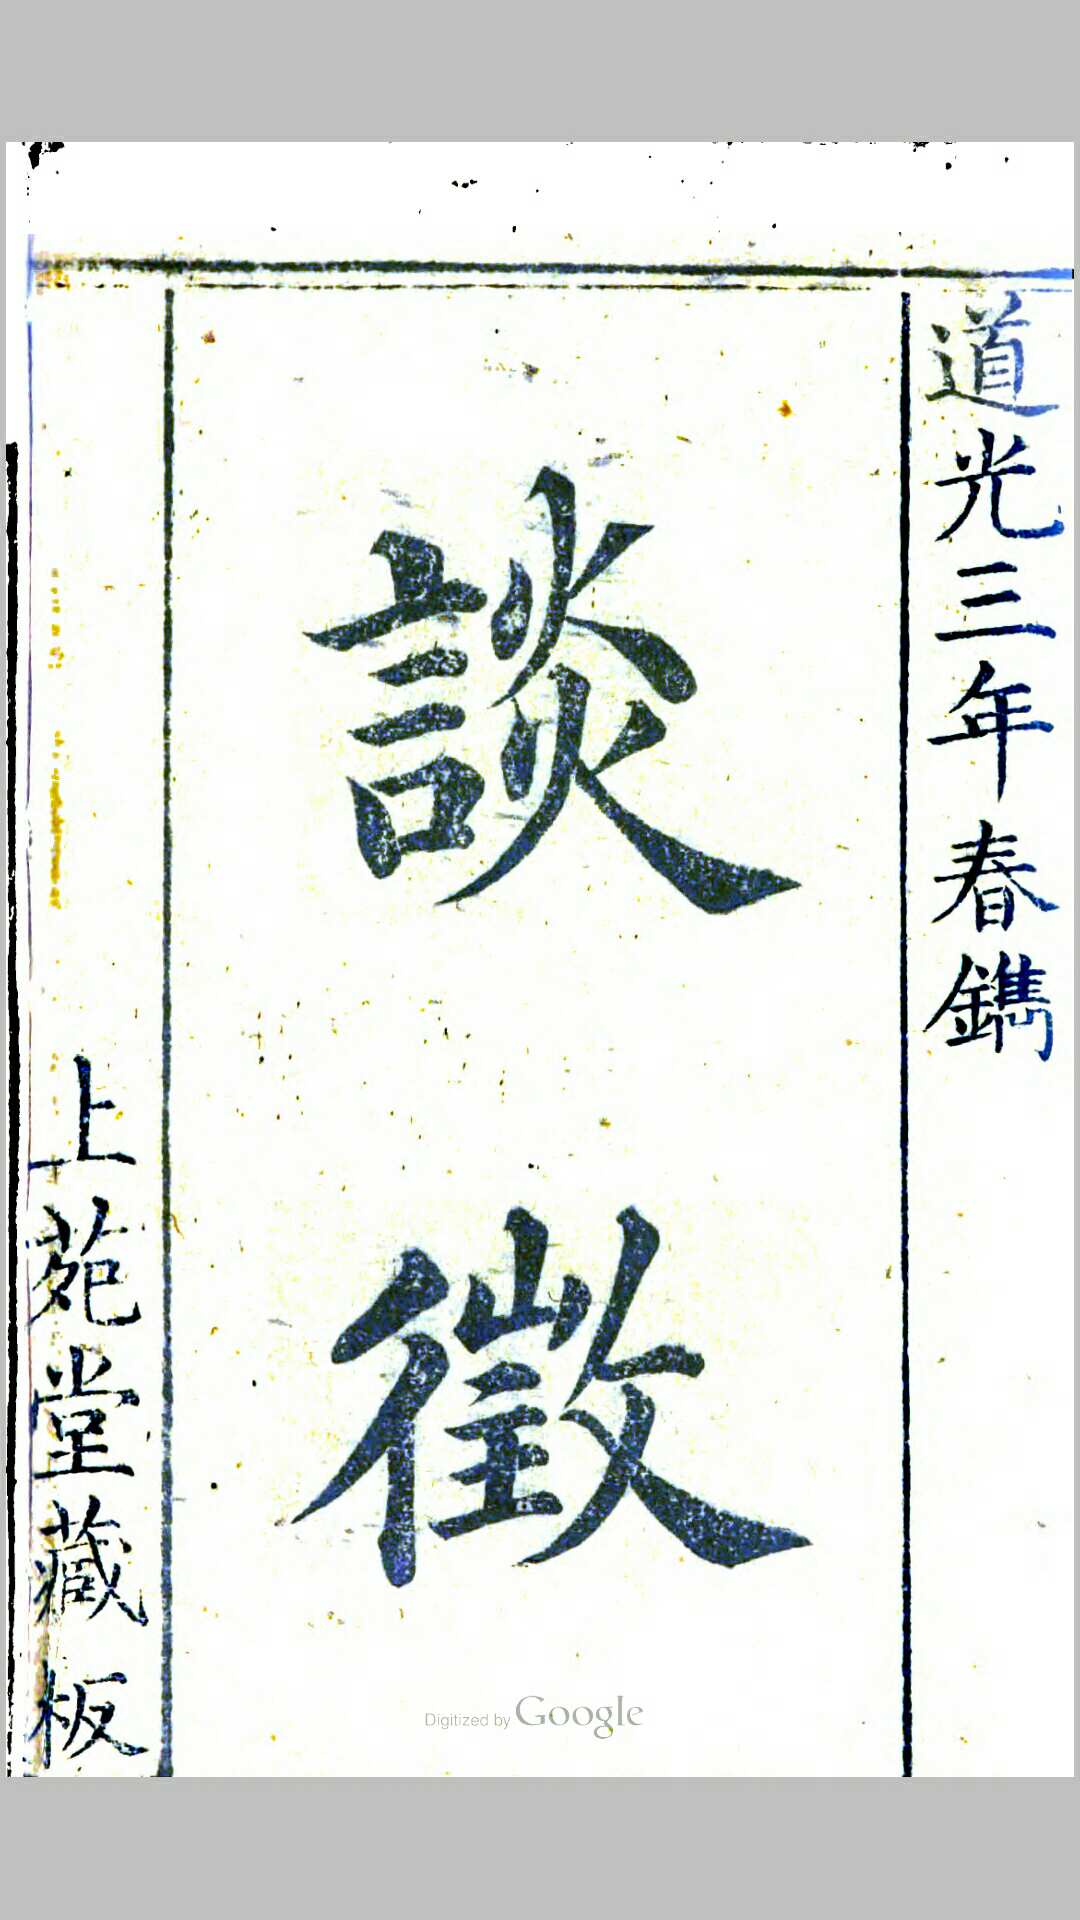 道光三年春鐫
談徵
上苑堂藏板
Digitized by Google